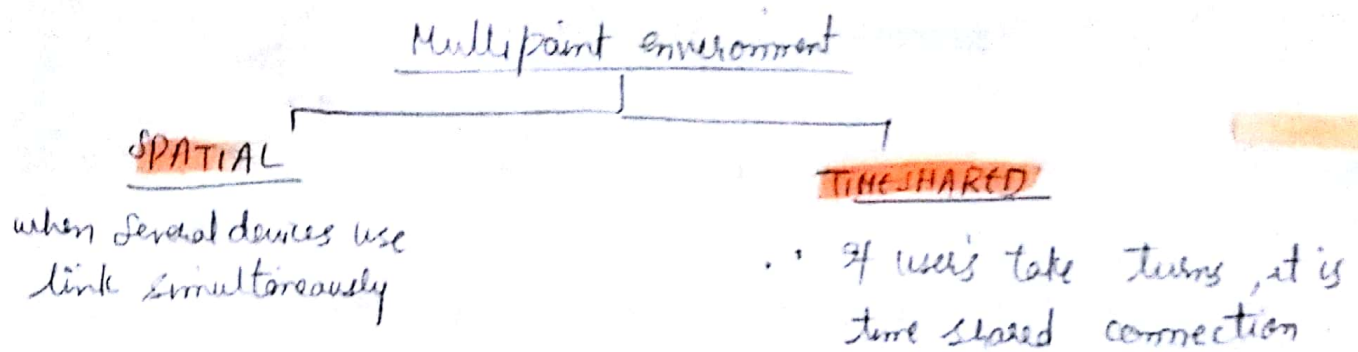 Multipoint environment
SPATIAL
when several devices use
link simultaneously
TIMESHARED
If users take turns, it is
time shared connection